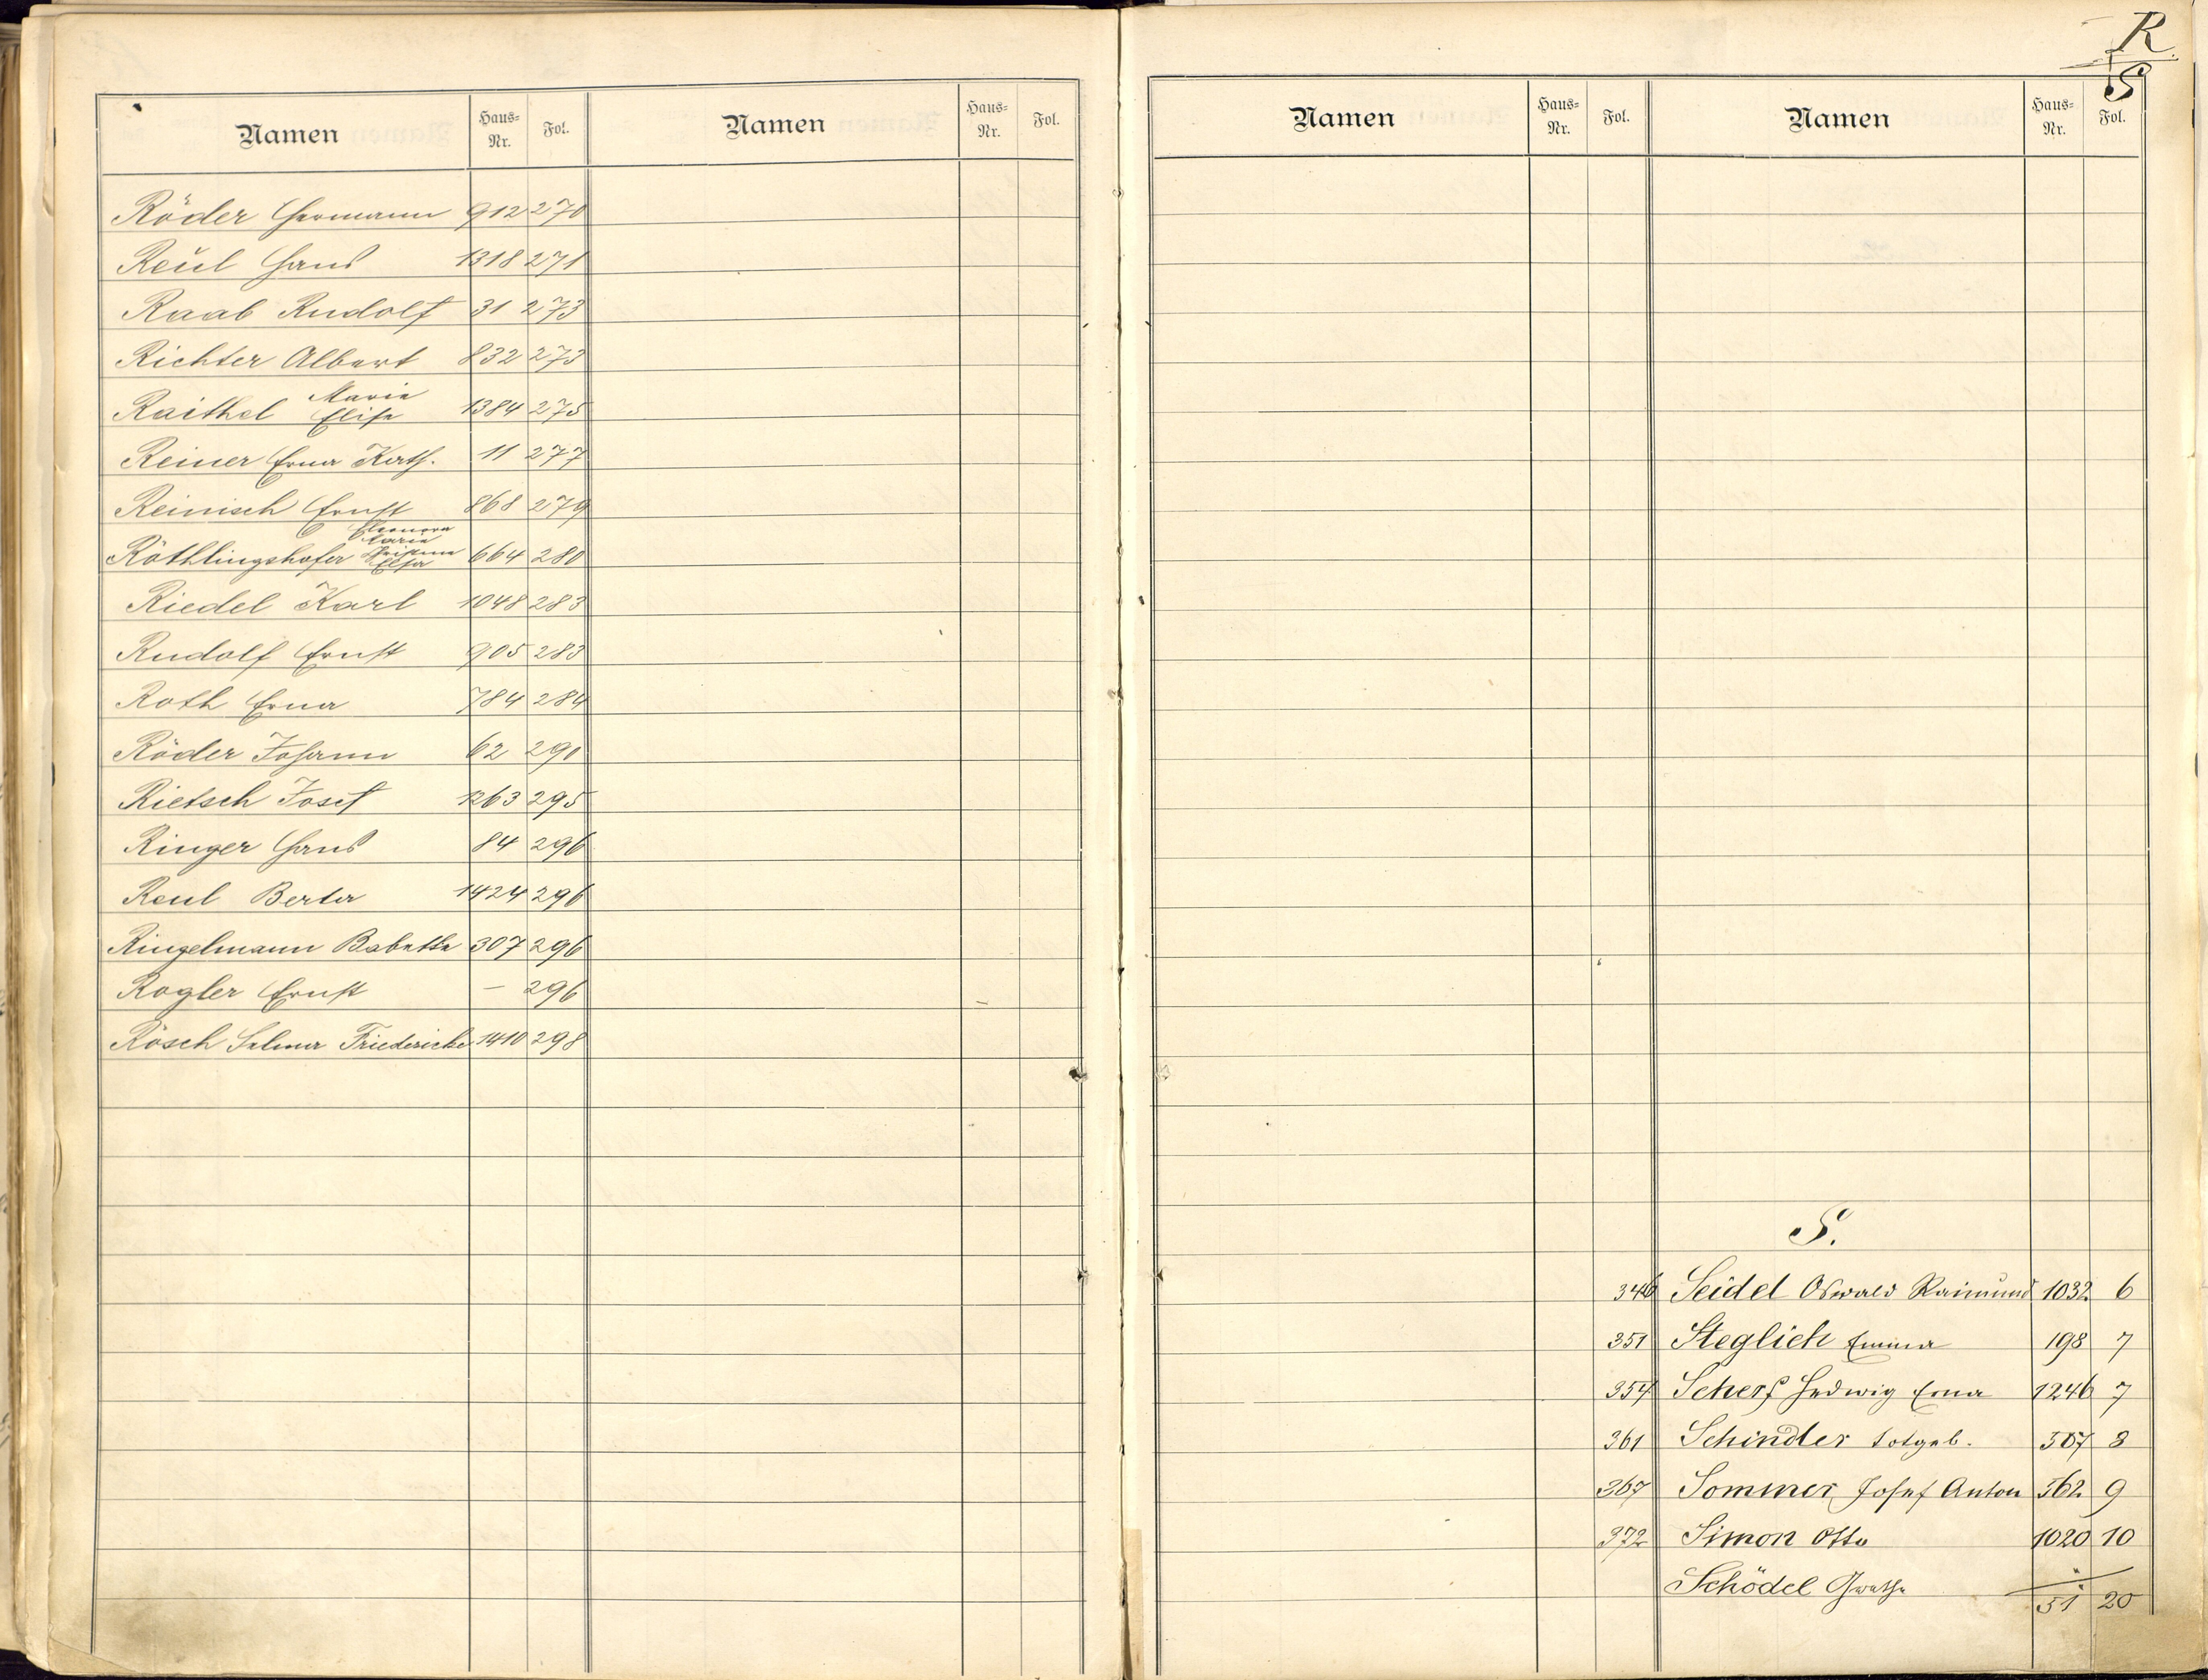 Namen Haus-Nr. Fol. Namen Haus-Nr. Fol.
Röder Hermann 912 270
Reul Hans 1318 271
Raab Rudolf 31 273
Richter Albert 832 273
Marie
Raithel Elise 1384 275
Reiner Erna Kath. 11 277
Reinisch Ernst 868 279
Eleonora
Maria
Röthlingshöfer Elsa 664 280
Riedel Karl 1048 283
Rudolf Ernst 905 283
Roth Erna 784 284
Röder Johann 62 290
Rietsch Josef 1263 295
Ringer Hans 84 296
Reul Berta 1424 296
Ringelmann Babette 307 296
Rogler Ernst — 296
Rösch Selma Friedericke 1410 298
R
S
Namen Haus-Nr. Fol. Namen Haus-Nr. Fol.
S.
346 Seidel Oswald Raimund 1032 6
351 Steglich Emma 198 7
354 Scherf Hedwig Erna 1246 7
361 Schindler totgeb. 507 8
367 Sommer Josef Anton 562 9
372 Simon Otto 1020 10
Schödel Grethe 51 20